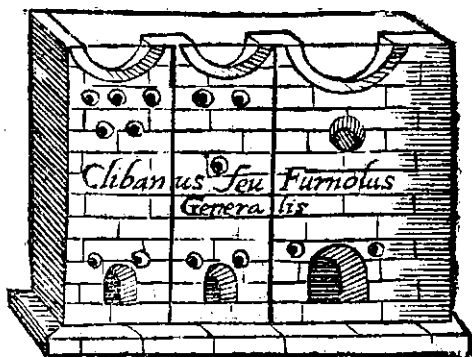 Clibanus seu Furnolus
Generalis